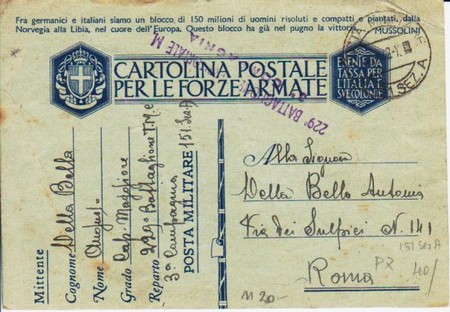 Fra germanici e italiani siamo un blocco di 150 milioni di uomini risoluti e compatti e piantati, dalla
Norvegia alla Libia, nel cuore dell'Europa. Questo blocco ha già nel pugno la vittoria. MUSSOLINI
CARTOLINA POSTALE
PER LE FORZE ARMATE
ESENTE DA
TASSA PER
L'ITALIA E
SVE COLONIE
229° BATTAGLIONE
SEZ. A
Mittente
Cognome Della Bella
Nome Augusto
Grado Cap. Maggiore
Reparto 229° Battaglione T.M.
3° Compagnia
POSTA MILITARE 151 Sez A
Alla Signora
Della Bella Antonia
Via dei Sulpici N. 141
Roma
151 Sez A
PZ
40/
M 20-